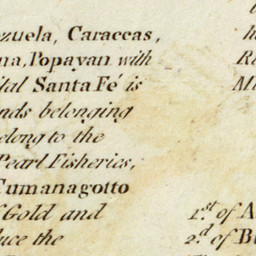 zuela, Caraccas,
na, Popayan with
ital Santa Fé is
nds belonging
elong to the
Pearl Fisheries,
Cumanagotto
f Gold and
uce the
h
R
M
1.st of A
2.d of B